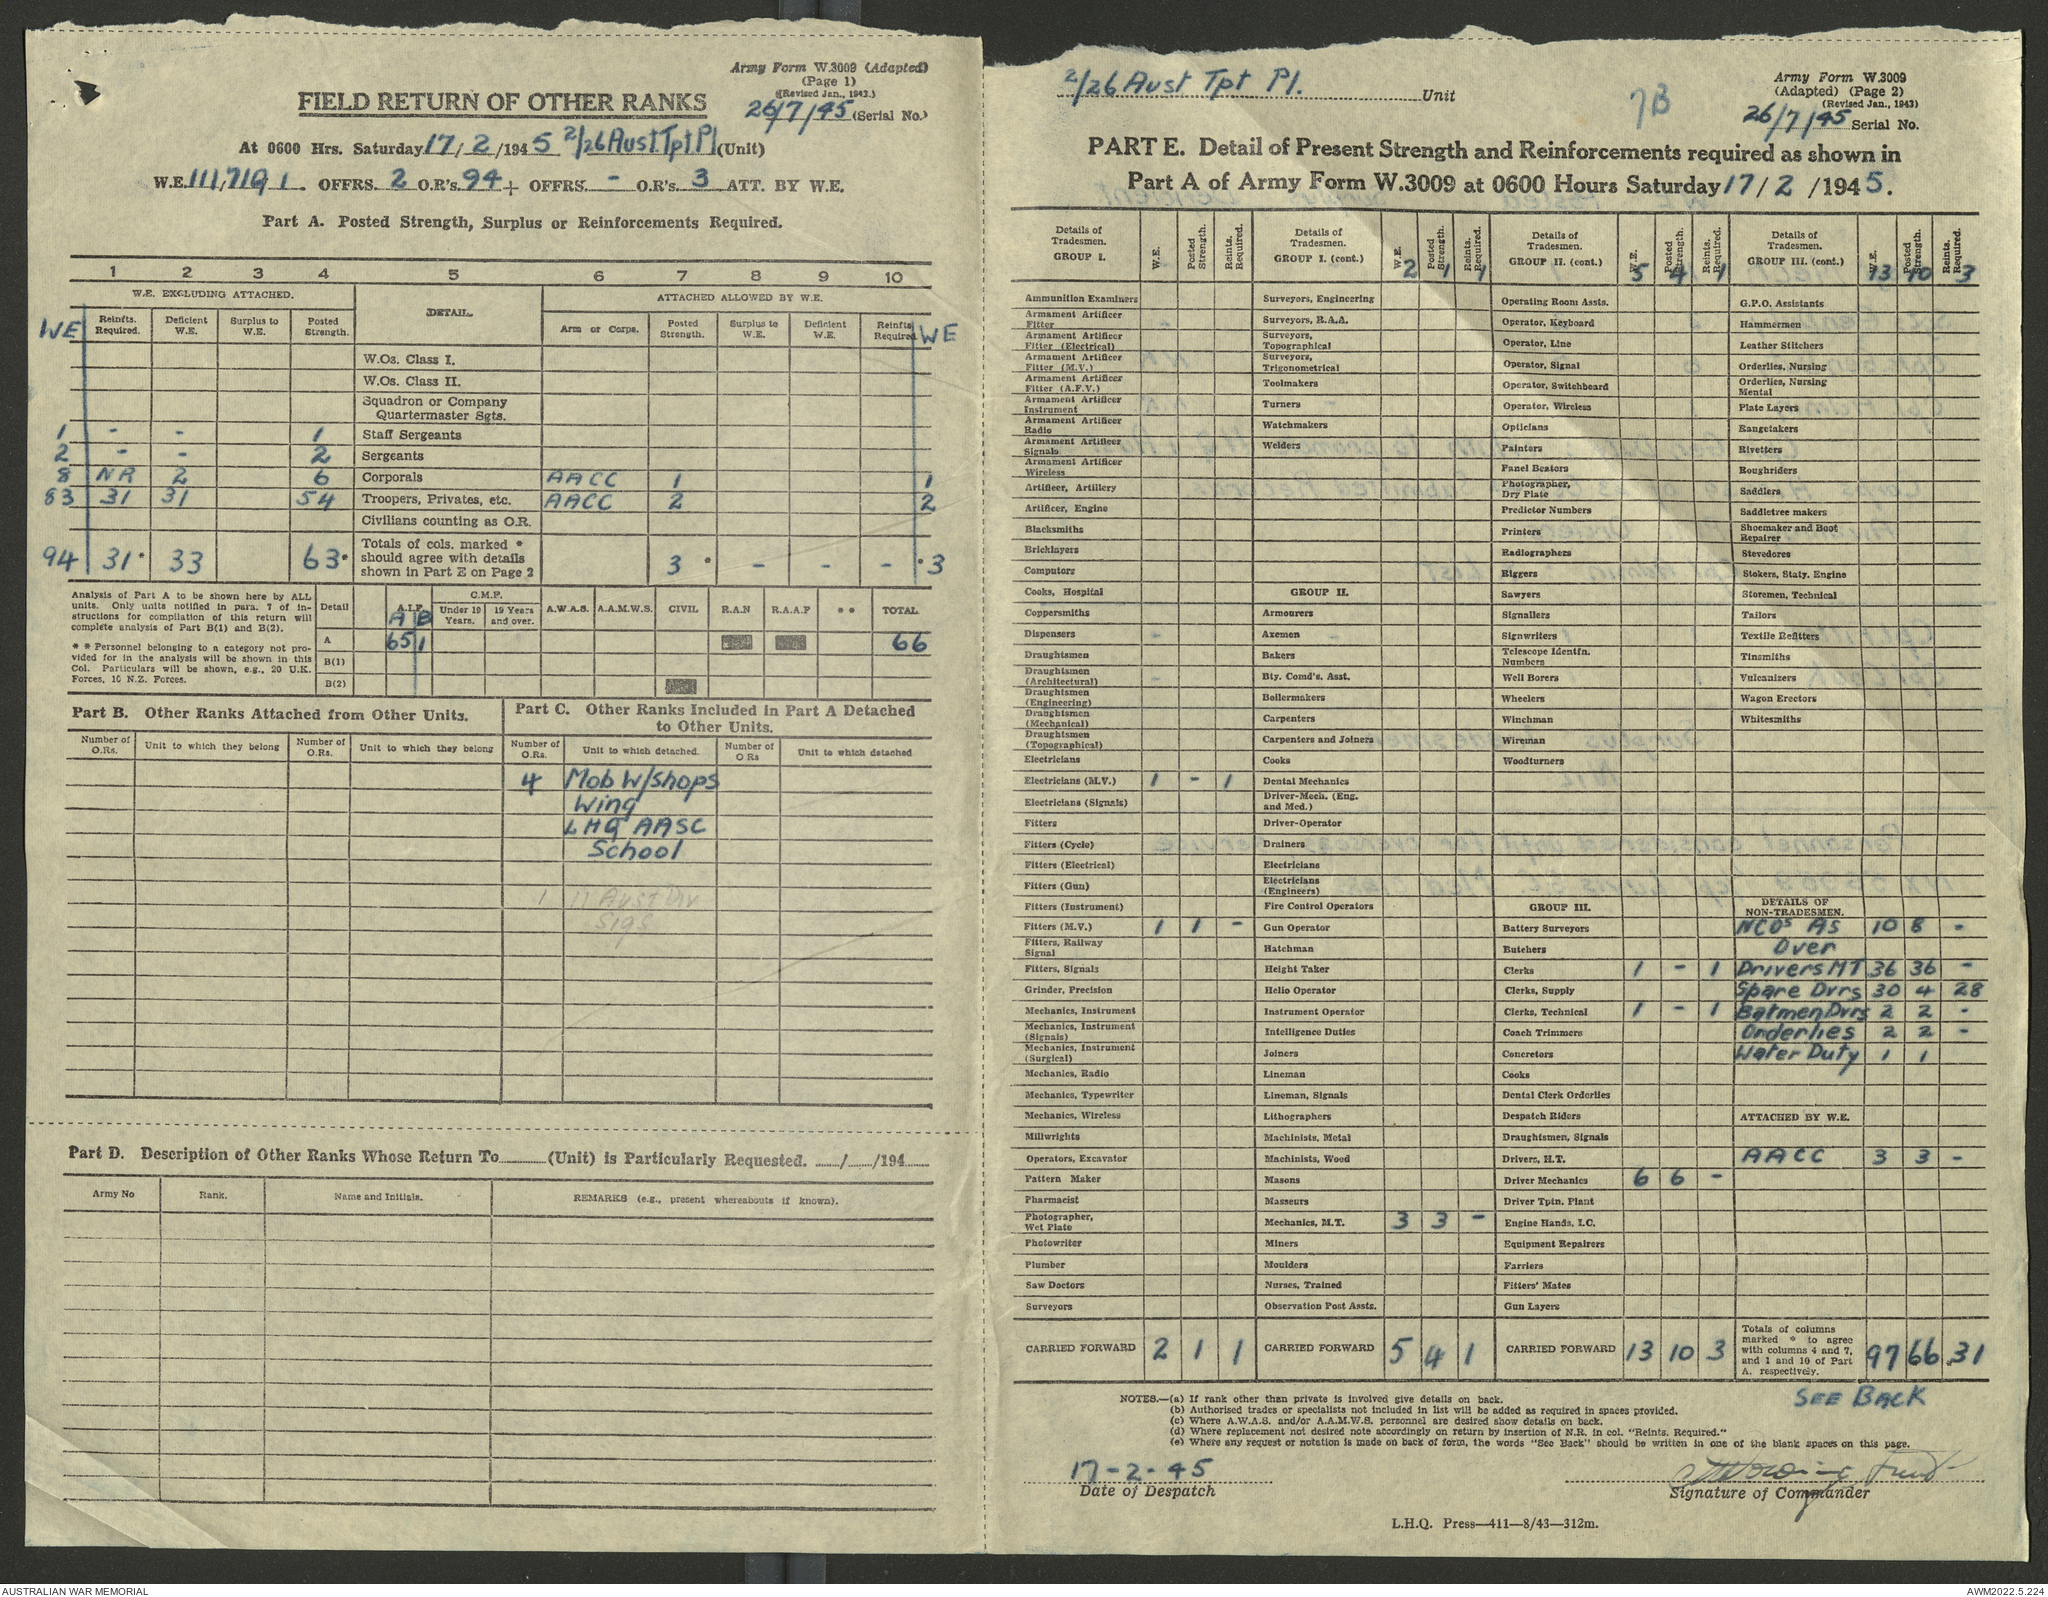 Army Form W.3009 (Adapted)
(Page 1)
(Revised Jan., 1943.)
FIELD RETURN OF OTHER RANKS
26/7/45 (Serial No.)
At 0600 Hrs. Saturday 17/2/1945 2/26 Aust Tpt Pl (Unit)
W.E. 111/719 1. OFFRS. 2 O.R's. 94 + OFFRS. - O.R's. 3 ATT. BY W.E.
Part A. Posted Strength, Surplus or Reinforcements Required.
1 2 3 4 5 6 7 8 9 10
W.E. EXCLUDING ATTACHED. DETAIL. ATTACHED ALLOWED BY W.E.
WE Reinfts. Required. Deficient W.E. Surplus to W.E. Posted Strength. Arm or Corps. Posted Strength. Surplus to W.E. Deficient W.E. Reinfts Required WE
W.Os. Class I.
W.Os. Class II.
Squadron or Company Quartermaster Sgts.
1 - - 1 Staff Sergeants
2 - - 2 Sergeants
8 NR 2 6 Corporals AACC 1 1
83 31 31 54 Troopers, Privates, etc. AACC 2 2
Civilians counting as O.R.
94 31* 33 63* Totals of cols. marked * should agree with details shown in Part E on Page 2 3 * - - - *3
Analysis of Part A to be shown here by ALL units. Only units notified in para. 7 of instructions for compilation of this return will complete analysis of Part B(1) and B(2).
* * Personnel belonging to a category not provided for in the analysis will be shown in this Col. Particulars will be shown, e.g., 20 U.K. Forces, 10 N.Z. Forces.
Detail A.I.F. A B C.M.F. Under 19 Years. 19 Years and over. A.W.A.S. A.A.M.W.S. CIVIL R.A.N R.A.A.F * * TOTAL
A 65 1 66
B(1)
B(2)
Part B. Other Ranks Attached from Other Units.
Number of O.Rs. Unit to which they belong Number of O.Rs. Unit to which they belong
Part C. Other Ranks Included in Part A Detached to Other Units.
Number of O.Rs. Unit to which detached. Number of O Rs Unit to which detached
4 Mob W/shops
Wing
LHQ AASC
School
1 11 Aust Div
Sigs
Part D. Description of Other Ranks Whose Return To (Unit) is Particularly Requested. / /194
Army No Rank. Name and Initials. REMARKS (e.g., present whereabouts if known).
2/26 Aust Tpt Pl. Unit
7B
Army Form W.3009
(Adapted) (Page 2)
(Revised Jan., 1943)
26/7/45 Serial No.
PART E. Detail of Present Strength and Reinforcements required as shown in
Part A of Army Form W.3009 at 0600 Hours Saturday 17/2/1945.
Details of Tradesmen. GROUP I. W.E. Posted Strength. Reints. Required.
Ammunition Examiners
Armament Artificer Fitter
Armament Artificer Fitter (Electrical)
Armament Artificer Fitter (M.V.)
Armament Artificer Fitter (A.F.V.)
Armament Artificer Instrument
Armament Artificer Radio
Armament Artificer Signals
Armament Artificer Wireless
Artificer, Artillery
Artificer, Engine
Blacksmiths
Bricklayers
Computors
Cooks, Hospital
Coppersmiths
Dispensers
Draughtsmen
Draughtsmen (Architectural)
Draughtsmen (Engineering)
Draughtsmen (Mechanical)
Draughtsmen (Topographical)
Electricians
Electricians (M.V.) 1 - 1
Electricians (Signals)
Fitters
Fitters (Cycle)
Fitters (Electrical)
Fitters (Gun)
Fitters (Instrument)
Fitters (M.V.) 1 1 -
Fitters, Railway Signal
Fitters, Signals
Grinder, Precision
Mechanics, Instrument
Mechanics, Instrument (Signals)
Mechanics, Instrument (Surgical)
Mechanics, Radio
Mechanics, Typewriter
Mechanics, Wireless
Millwrights
Operators, Excavator
Pattern Maker
Pharmacist
Photographer, Wet Plate
Photowriter
Plumber
Saw Doctors
Surveyors
CARRIED FORWARD 2 1 1
Details of Tradesmen. GROUP I. (cont.) W.E. 2 Posted Strength. 1 Reints. Required. 1
Surveyors, Engineering
Surveyors, R.A.A.
Surveyors, Topographical
Surveyors, Trigonometrical
Toolmakers
Turners
Watchmakers
Welders
GROUP II.
Armourers
Axemen
Bakers
Bty. Comd's. Asst.
Boilermakers
Carpenters
Carpenters and Joiners
Cooks
Dental Mechanics
Driver-Mech. (Eng. and Med.)
Driver-Operator
Drainers
Electricians
Electricians (Engineers)
Fire Control Operators
Gun Operator
Hatchman
Height Taker
Helio Operator
Instrument Operator
Intelligence Duties
Joiners
Lineman
Lineman, Signals
Lithographers
Machinists, Metal
Machinists, Wood
Masons
Masseurs
Mechanics, M.T. 3 3 -
Miners
Moulders
Nurses, Trained
Observation Post Assts.
CARRIED FORWARD 5 4 1
Details of Tradesmen. GROUP II. (cont.) W.E. 5 Posted Strength. 4 Reints. Required. 1
Operating Room Assts.
Operator, Keyboard
Operator, Line
Operator, Signal
Operator, Switchboard
Operator, Wireless
Opticians
Painters
Panel Beaters
Photographer, Dry Plate
Predictor Numbers
Printers
Radiographers
Riggers
Sawyers
Signallers
Signwriters
Telescope Identfn. Numbers
Well Borers
Wheelers
Winchman
Wireman
Woodturners
GROUP III.
Battery Surveyors
Butchers
Clerks 1 - 1
Clerks, Supply
Clerks, Technical 1 - 1
Coach Trimmers
Concretors
Cooks
Dental Clerk Orderlies
Despatch Riders
Draughtsmen, Signals
Drivers, H.T.
Driver Mechanics 6 6 -
Driver Tptn. Plant
Engine Hands, I.C.
Equipment Repairers
Farriers
Fitters' Mates
Gun Layers
CARRIED FORWARD 13 10 3
Details of Tradesmen. GROUP III. (cont.) W.E. 13 Posted Strength. 10 Reints. Required. 3
G.P.O. Assistants
Hammermen
Leather Stitchers
Orderlies, Nursing
Orderlies, Nursing Mental
Plate Layers
Rangetakers
Rivetters
Roughriders
Saddlers
Saddletree makers
Shoemaker and Boot Repairer
Stevedores
Stokers, Staty. Engine
Storemen, Technical
Tailors
Textile Refitters
Tinsmiths
Vulcanizers
Wagon Erectors
Whitesmiths
DETAILS OF NON-TRADESMEN.
NCOs As 10 8 -
Over
Drivers MT 36 36 -
Spare Dvrs 30 4 28
Batmen Dvrs 2 2 -
Orderlies 2 2 -
Water Duty 1 1
ATTACHED BY W.E.
AACC 3 3 -
Totals of columns marked * to agree with columns 4 and 7, and 1 and 10 of Part A. respectively. 97 66 *31
SEE BACK
NOTES.—(a) If rank other than private is involved give details on back.
(b) Authorised trades or specialists not included in list will be added as required in spaces provided.
(c) Where A.W.A.S. and/or A.A.M.W.S. personnel are desired show details on back.
(d) Where replacement not desired note accordingly on return by insertion of N.R. in col. "Reints. Required."
(e) Where any request or notation is made on back of form, the words "See Back" should be written in one of the blank spaces on this page.
17-2-45
Date of Despatch
Signature of Commander
L.H.Q. Press—411—8/43—312m.
AUSTRALIAN WAR MEMORIAL
AWM2022.5.224